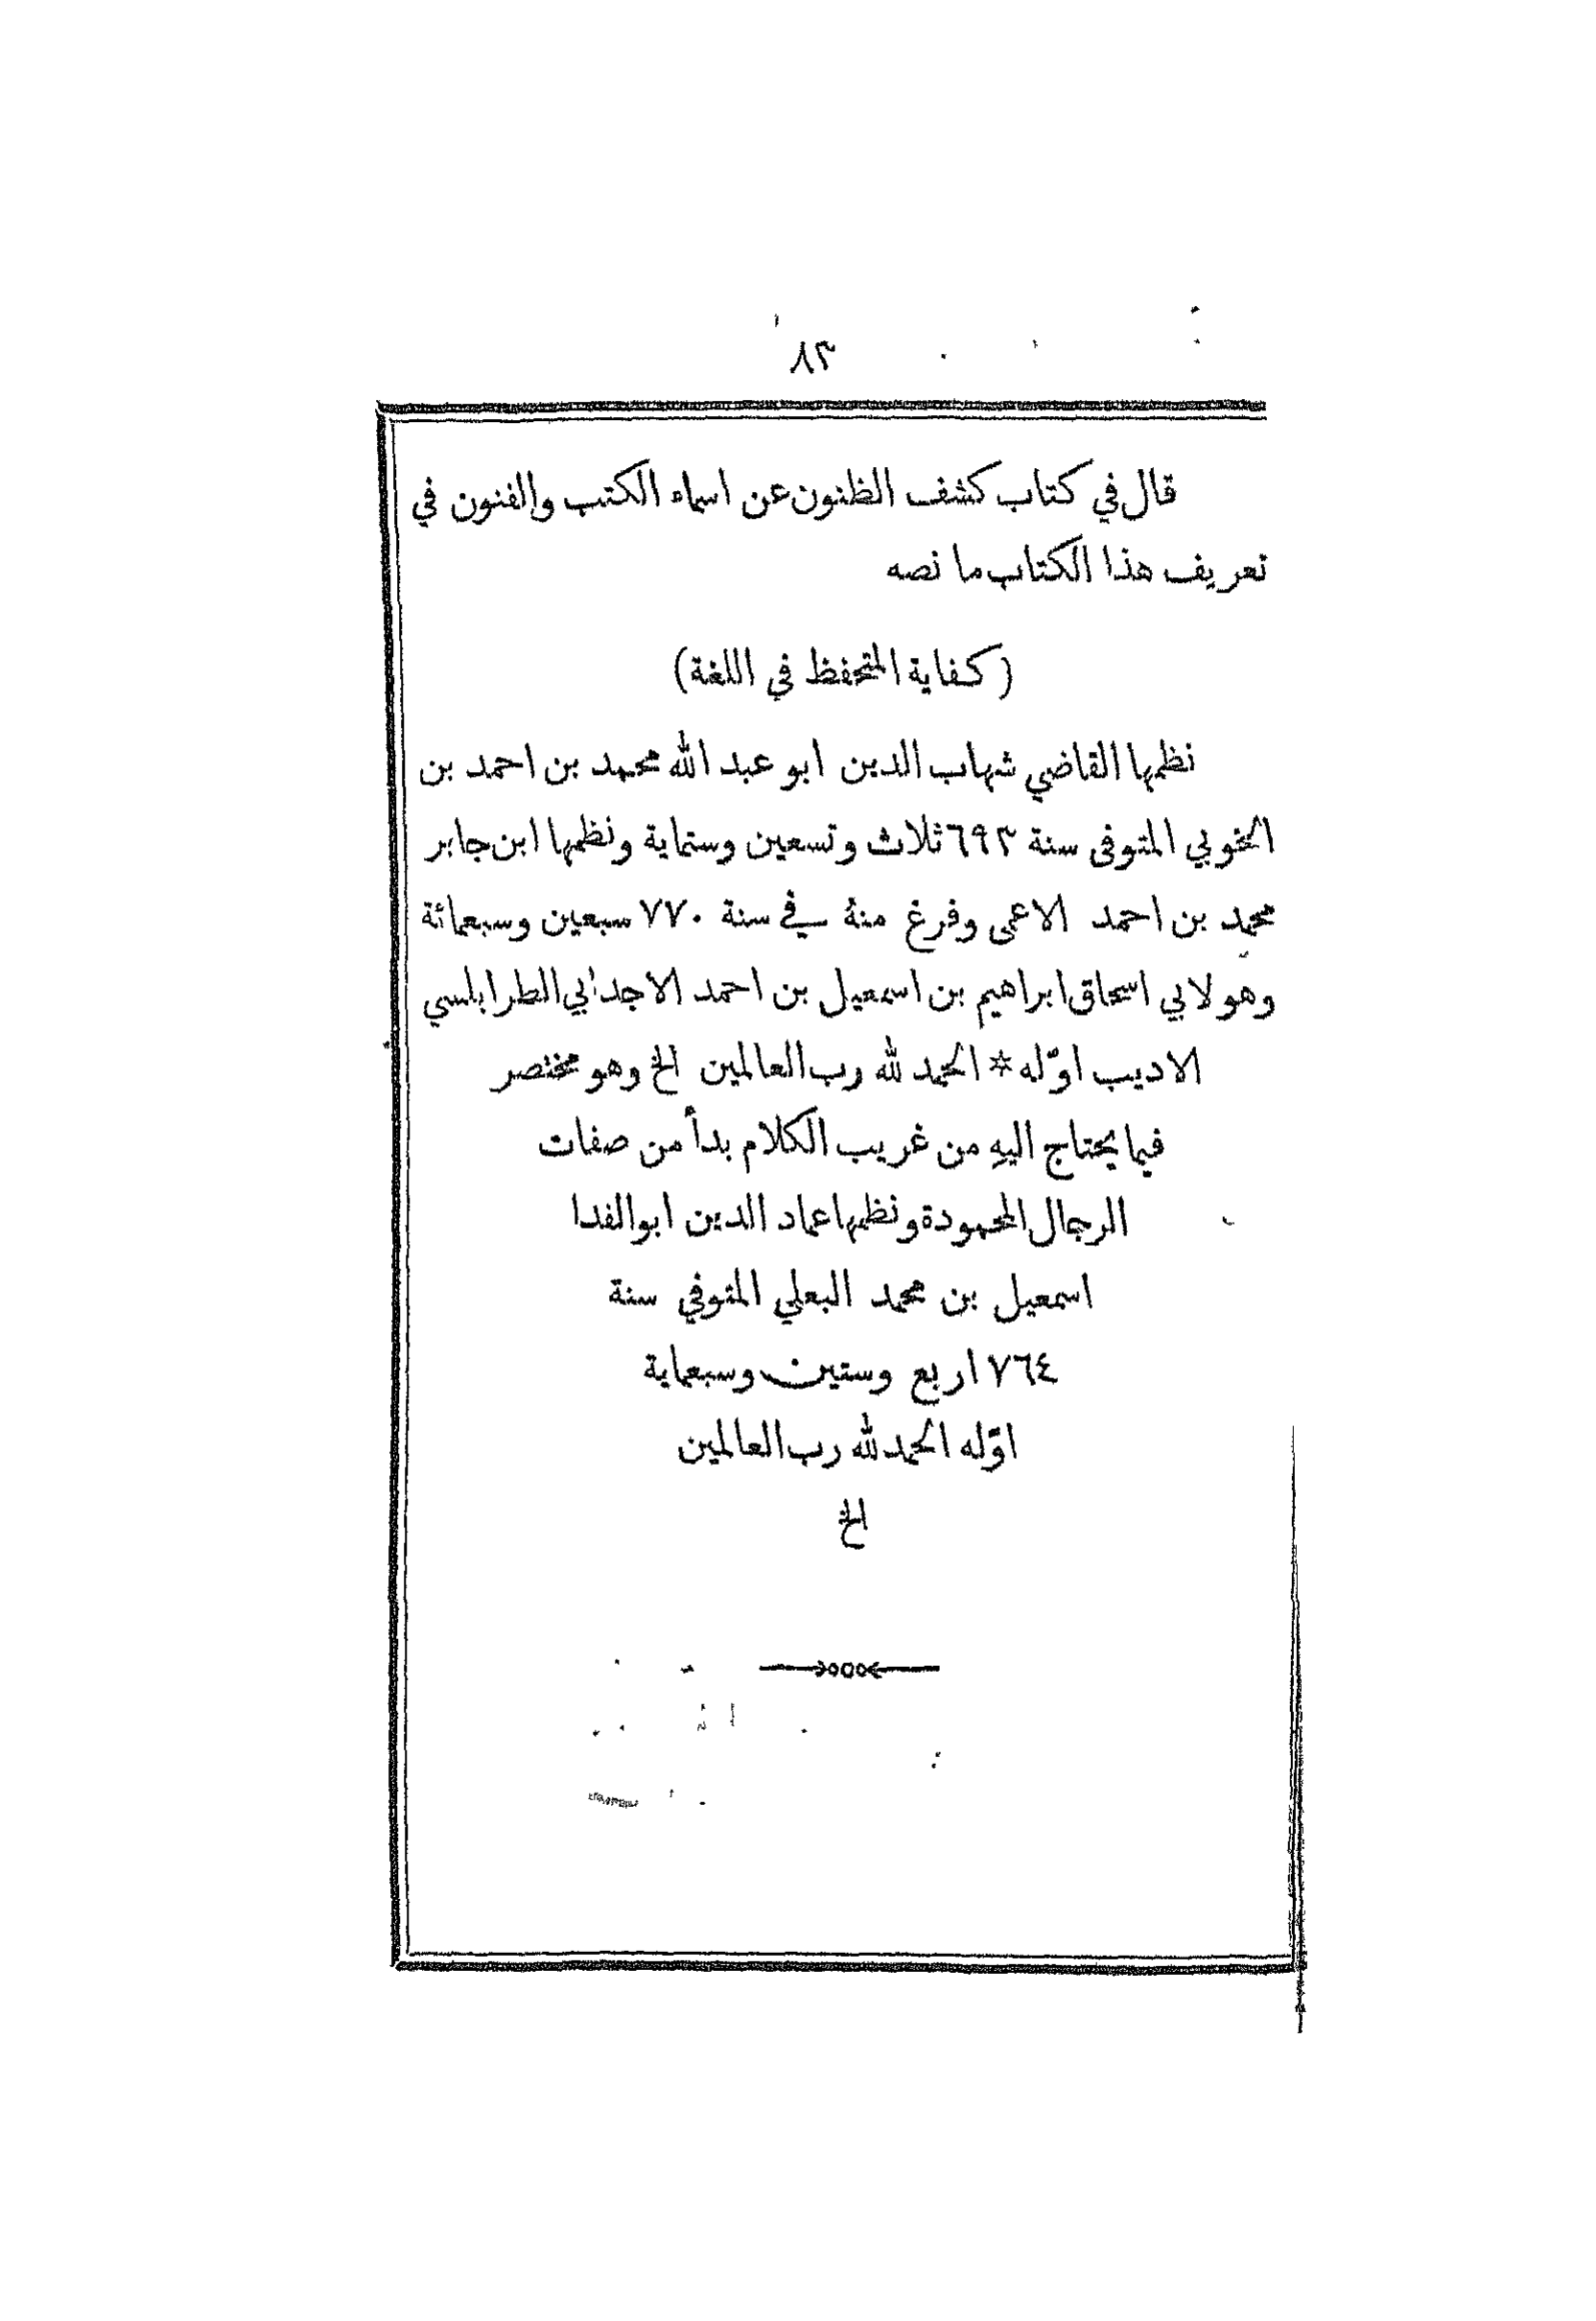 ٨٣
قال في كتاب كشف الظنون عن اسماء الكتب والفنون في
تعريف هذا الكتاب ما نصه
(كفاية المتحفظ في اللغة)
نظمها القاضي شهاب الدين ابو عبد الله محمد بن احمد بن
الخوبي المتوفى سنة ٦٩٣ ثلاث وتسعين وستماية ونظمها ابن جابر
محمد بن احمد الاعمى وفرغ منهُ في سنة ٧٧٠ سبعين وسبعمائة
وهو لابي اسحاق ابراهيم بن اسمعيل بن احمد الاجدابي الطرابلسي
الاديب اوّله * الحمد لله رب العالمين الخ وهو مختصر
فيما يحتاج اليهِ من غريب الكلام بدأ من صفات
الرجال المحمودة ونظمها عماد الدين ابو الفدا
اسمعيل بن محمد البعلي المتوفي سنة
٧٦٤ اربع وستين وسبعماية
اوّله الحمد لله رب العالمين
الخ